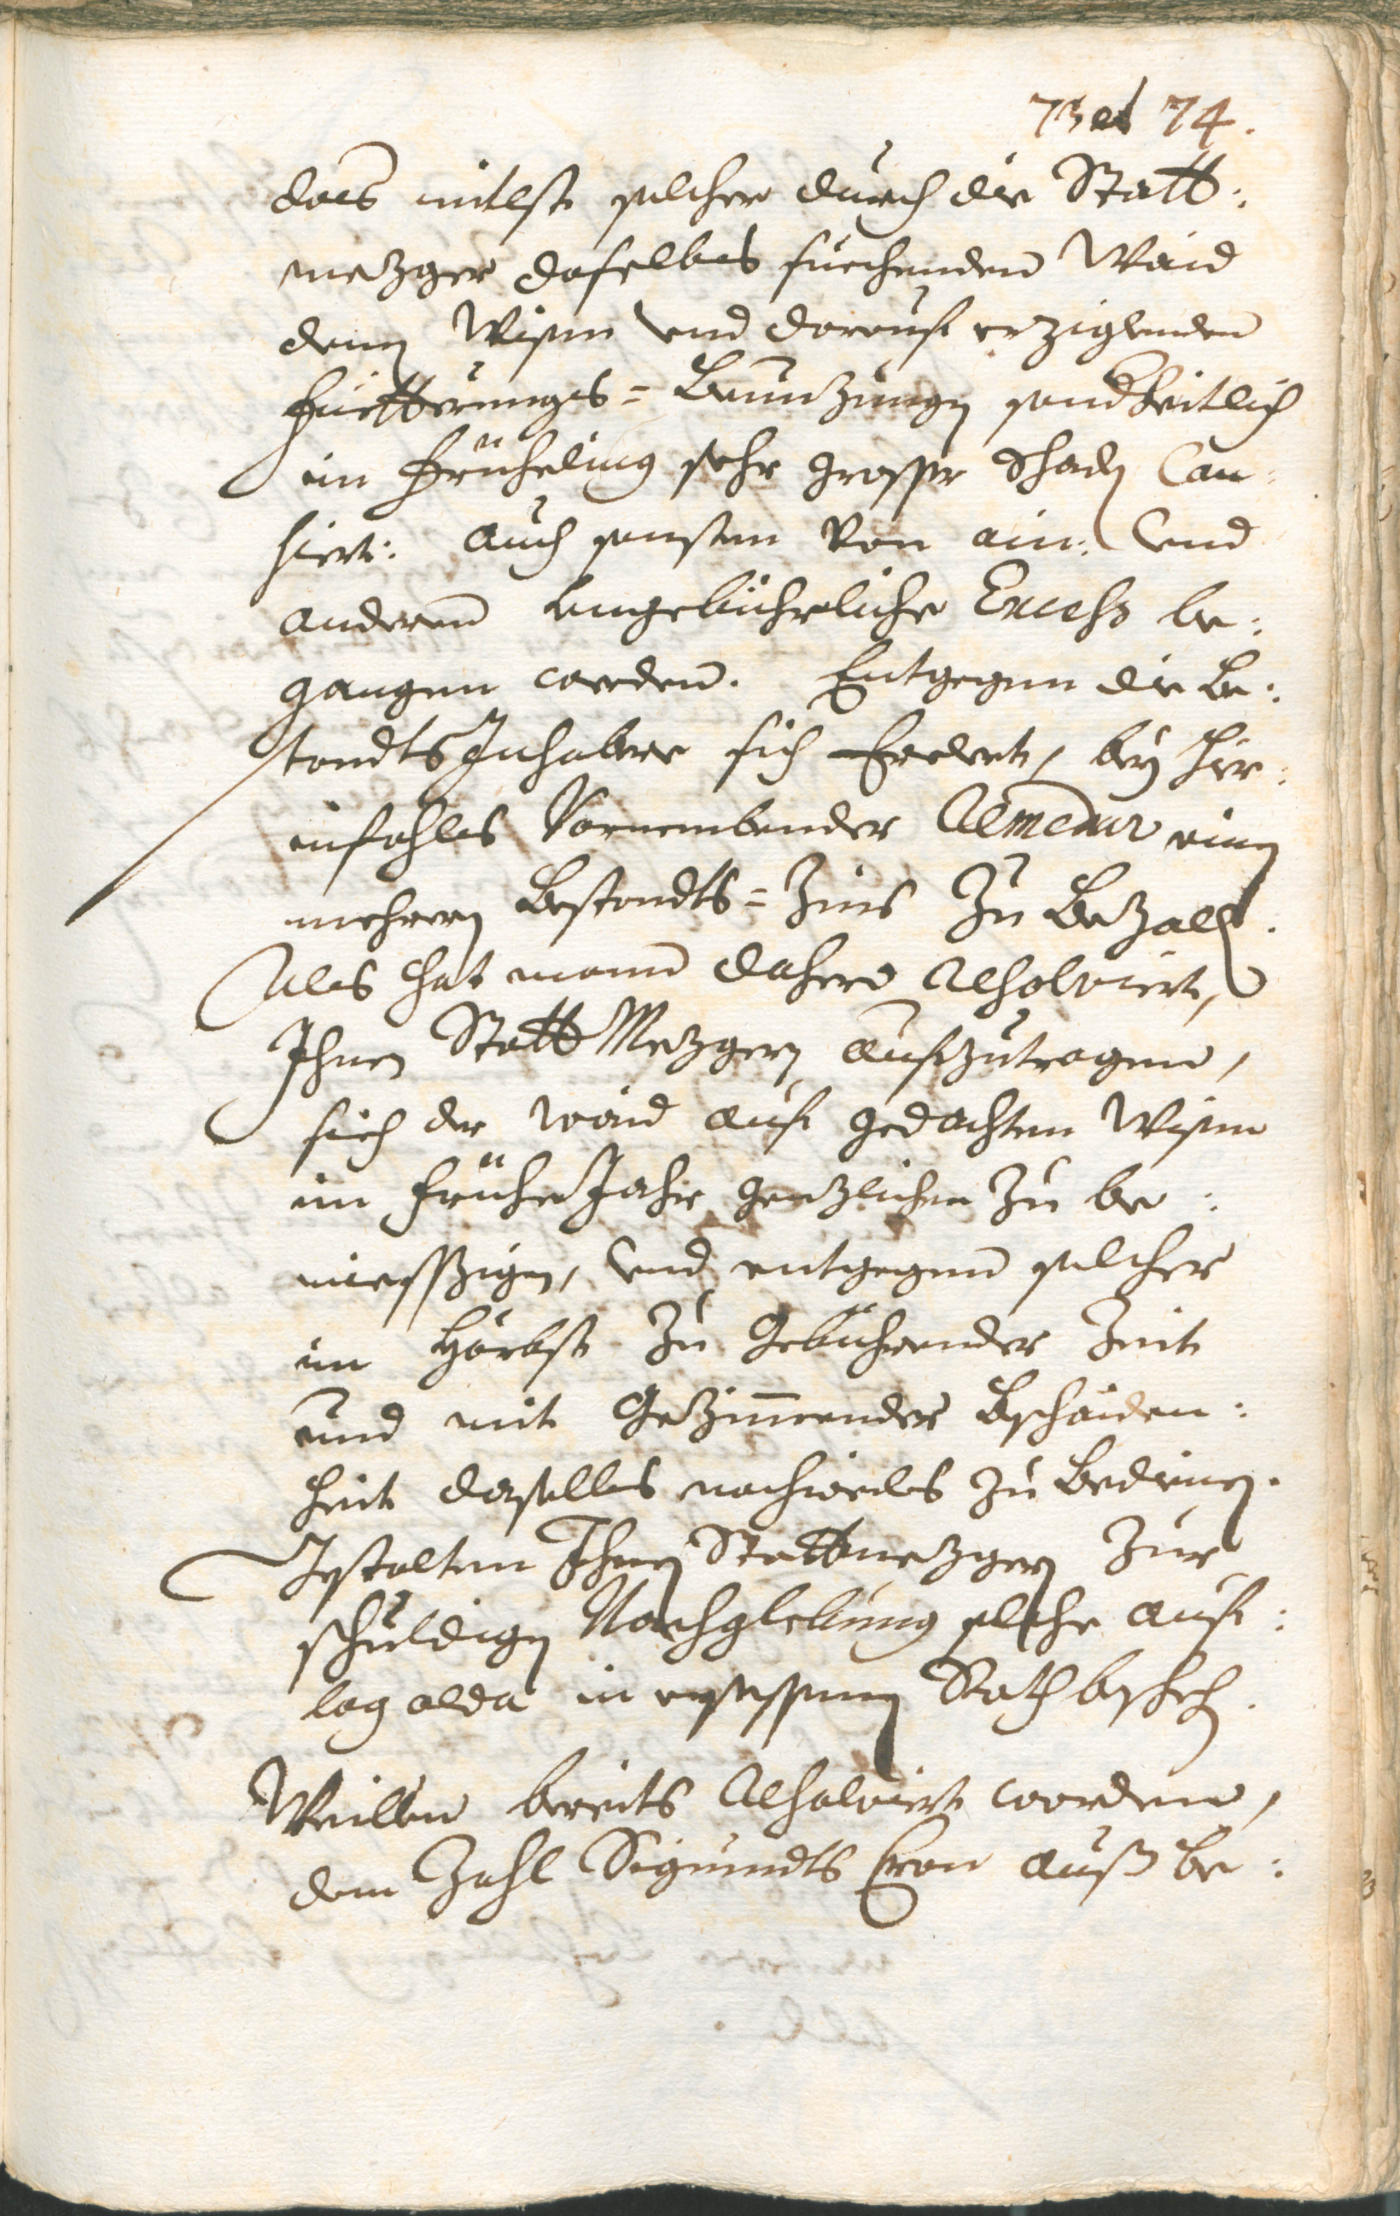 73 et 74.
das mitlst solcher durch die Statt:
mezger daselbs suechenden Waid
denen Wisen und darauf erziglenden
Fuetterungs= Benuzungen sondheitlich
im Früheling sehr grosser Schaden Cau-
siert: auch sonsten von ain: und
anderen ungebührliche Excess be:
gangen werden. Entgegen die Be:
standts Inhabere sich Erbiet, bey hier:
infahls Vornembender Remedur einen
mehrern Bestandts= Zins zu Bezallen.
Als hat mann dahero Resolviert,
Ihnen Statt Mezgern aufzutragen,
sich der waid auf gedachten Wisen
im Frühe Jahr genzlichen zu be:
miessigen, und entgegen solcher
im Hörbst zu Gebührender Zeit
und mit Gezimmender Bschaiden:
heit daselbs nachwerts zu Bedienen.
Gstalten Ihnen Stattmezgern zur
schuldigen Nachglebung solche auf:
lag alda in ersessenen Rath beschehen.
Weillen bereits Resolviert worden,
dem Zahl Sigmundts Cron auß be: